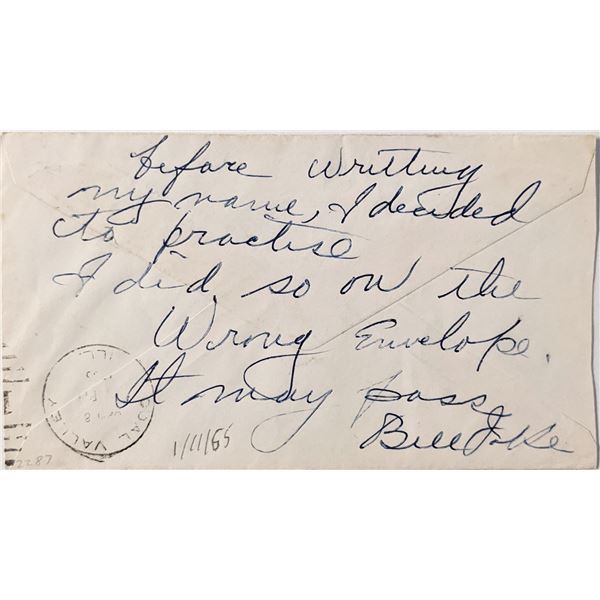 before writting
my name, I decided
to practise
I did so on the
Wrong Envelope.
It may pass
Bill
COAL VALLEY
ILL.
1/11/55
2287